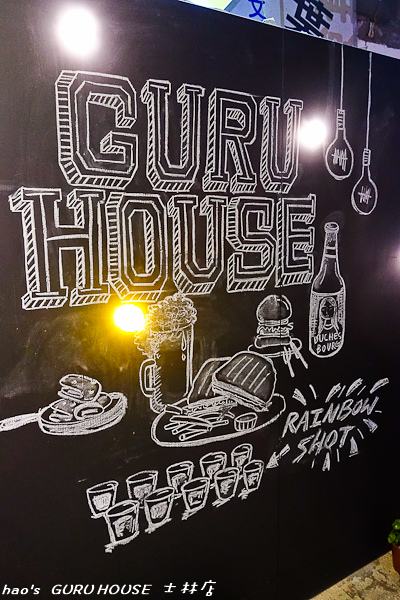 文
葉
GURU
HOUSE
DUCHES
BOURG
RAINBOW
SHOT
hao's GURU HOUSE 士林店